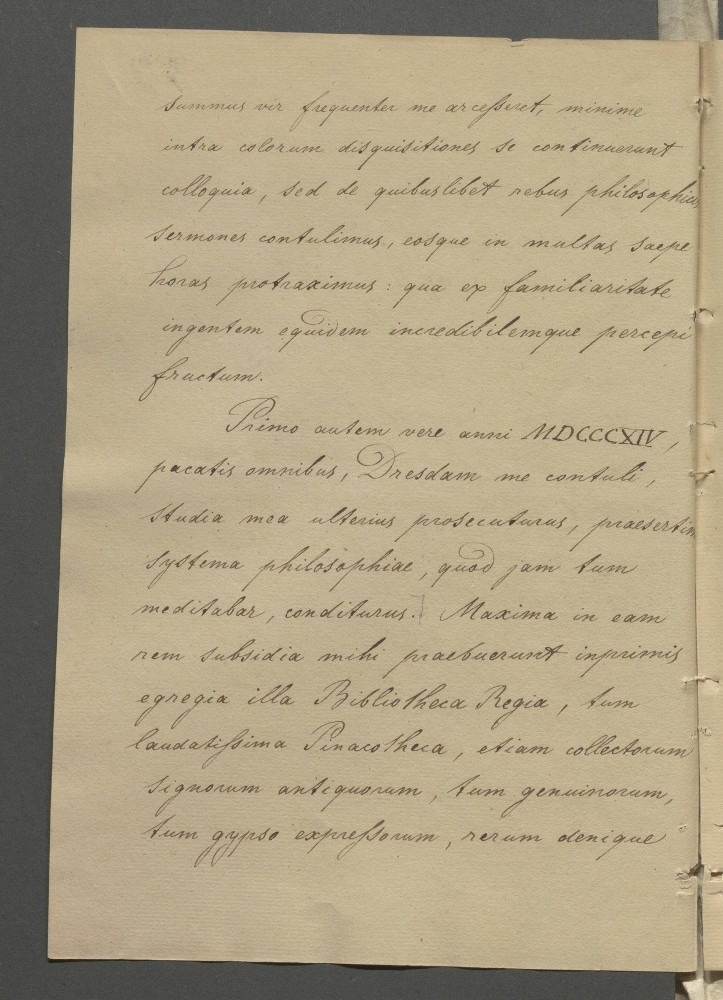 summus vir frequenter me arcesseret, minime
intra colorum disquisitiones se continuerunt
colloquia, sed de quibuslibet rebus philosophicis
sermones contulimus, eosque in multas saepe
horas protraximus: qua ex familiaritate
ingentem equidem incredibilemque percepi
fructum.
Primo autem vere anni MDCCCXIV,
pacatis omnibus, Dresdam me contuli,
studia mea ulterius prosecuturus, praesertim
systema philosophiae, quod jam tum
meditabar, conditurus.] Maxima in eam
rem subsidia mihi praebuerunt inprimis
egregia illa Bibliotheca Regia, tum
laudatissima Pinacotheca, etiam collectorum
signorum antiquorum, tum genuinorum,
tum gypso expressorum, rerum denique